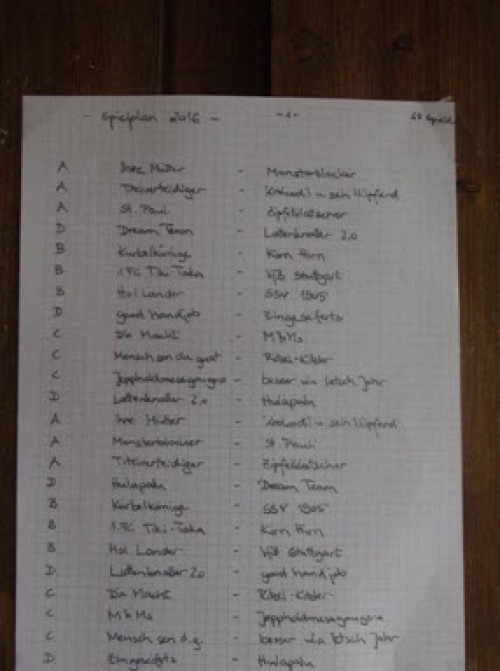 - Spielplan 2016 - -1- Spiele
A Ihre Mütter - Monsterblocker
A Titelverteidiger - Krokodil u sein Nilpferd
A St. Pauli - Zipfelklatscher
D Dream Team - Lattenknaller 2.0
B Kurbelkönige - Kirn Hirn
B 1. FC Tiki Taka - VfB Stuttgart
B Hol Lander - SSV 1905
D good handjob - Eingeseifets
C Da Mackt - M&Ms
C Mensch sen du guat - Ribel-Kibler
C - besser wia letsch Johr
D Lattenknaller 2.0 - Hulapalu
A Ihre Mütter - Krokodil u sein Nilpferd
A Monsterblocker - St Pauli
A Titelverteidiger - Zipfelklatscher
D Hulapalu - Dream Team
B Kurbelkönige - SSV 1905
B 1. FC Tiki-Taka - Kirn Hirn
B Hol Lander - VfB Stuttgart
D Lattenknaller 2.0 - good handjob
C Da Mackt - Ribel-Kibler
C M&Ms -
C Mensch sen d.g. - besser wia letsch Johr
D - Hulapalu